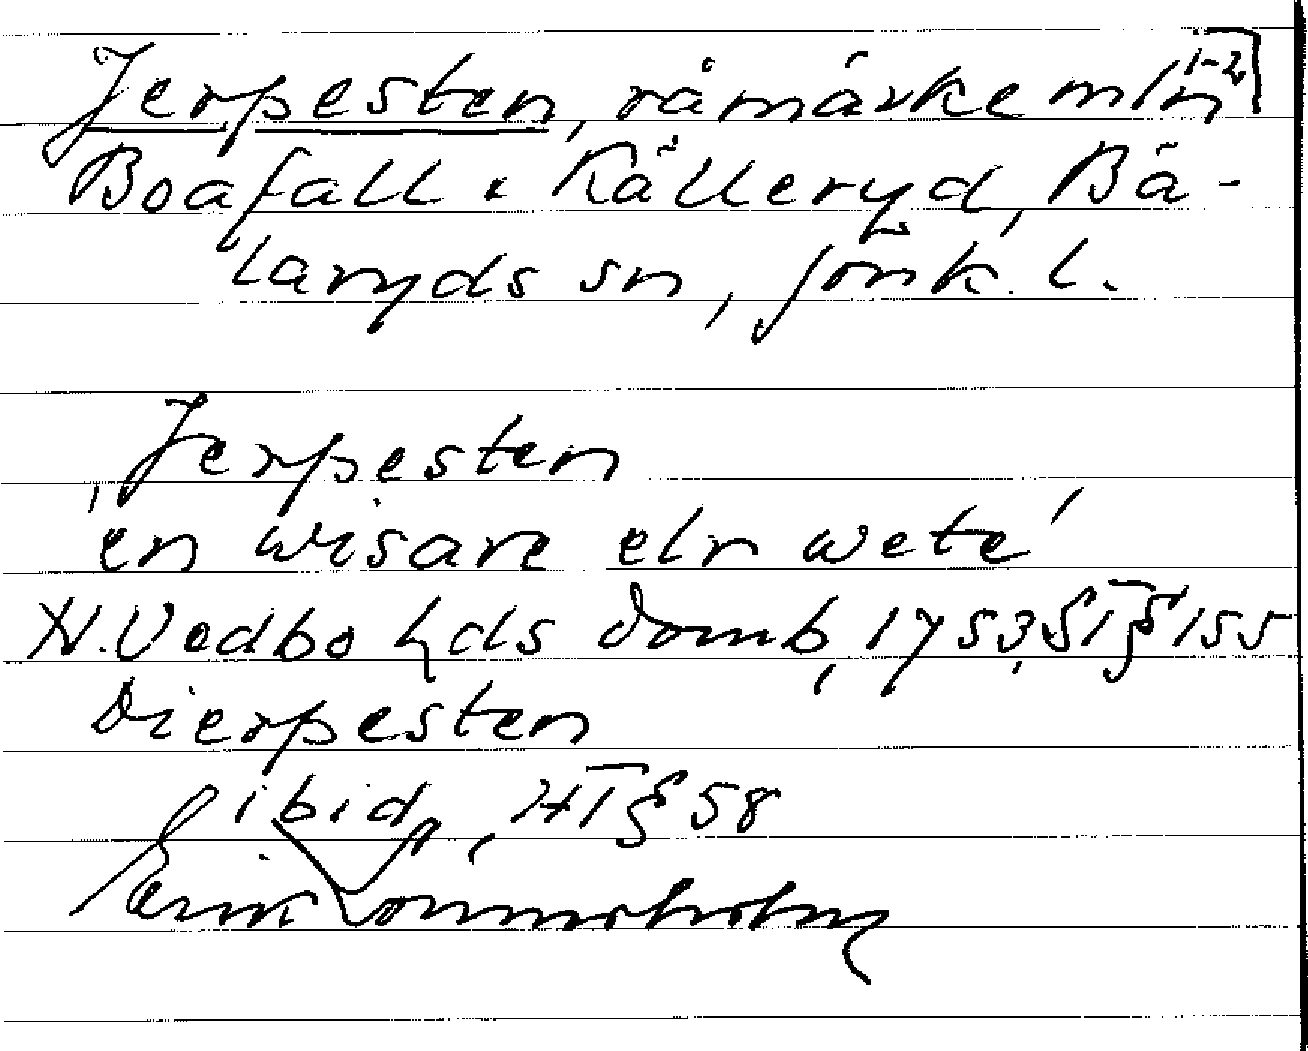 Jerpesten, råmärke mln 1-2
Boafall o. Källeryd, Bä-
laryds sn, Jönk. l.
'Jerpesten
en wisare elr wete'
N. Vedbo hds domb, 1753, ST § 155
Dierpesten
ibid, HT § 58
Erik